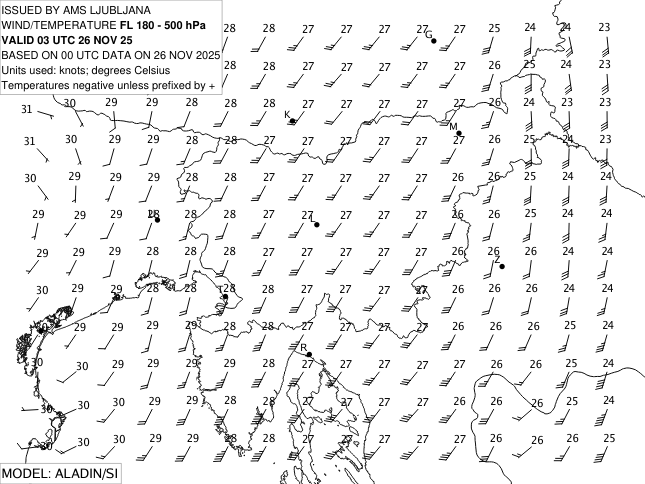 ISSUED BY AMS LJUBLJANA
WIND/TEMPERATURE FL 180 - 500 hPa
VALID 03 UTC 26 NOV 25
BASED ON 00 UTC DATA ON 26 NOV 2025
Units used: knots; degrees Celsius
Temperatures negative unless prefixed by +
28 28 27 27 27 27 25 24 24 23
G
28 28 27 27 27 27 26 25 24 23
31 30 29 29 28 28 28 27 27 27 27 26 24 23 23
K
M
31 30 29 29 28 28 27 27 27 27 27 26 25 24 23
30 29 29 29 28 28 27 27 27 27 26 26 25 24 24
29 29 29 28 28 28 27 27 27 27 26 26 25 24 24
L
29 29 29 28 28 28 27 27 27 27 26 26 26 24 24
Z
30 29 29 28 28 28 28 27 27 27 27 26 26 24 24
30 29 29 29 29 28 28 27 27 27 27 26 26 25 24
R
30 30 29 29 29 29 28 27 27 27 27 27 26 26 25 24
30 30 29 29 29 28 28 27 27 27 27 27 26 26 25 24
30 30 30 29 29 28 28 27 27 27 27 27 26 26 26 25
MODEL: ALADIN/SI